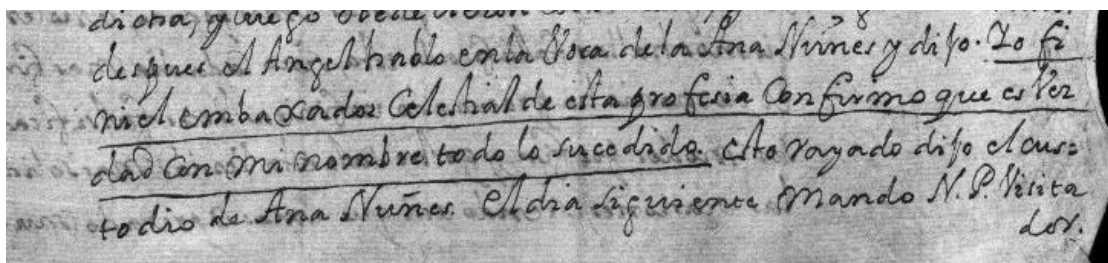 dicha, y luego
despues el Angel hablo en la Voca de la Ana Nuñes y dijo. Yo fi
niel embaxador Celestial de esta profesia Confirmo que es Ver
dad con mi nombre todo lo sucedido. esto rayado dijo el cus=
todio de Ana Nuñes. El dia siguiente Mando N. P. Visita
dor.